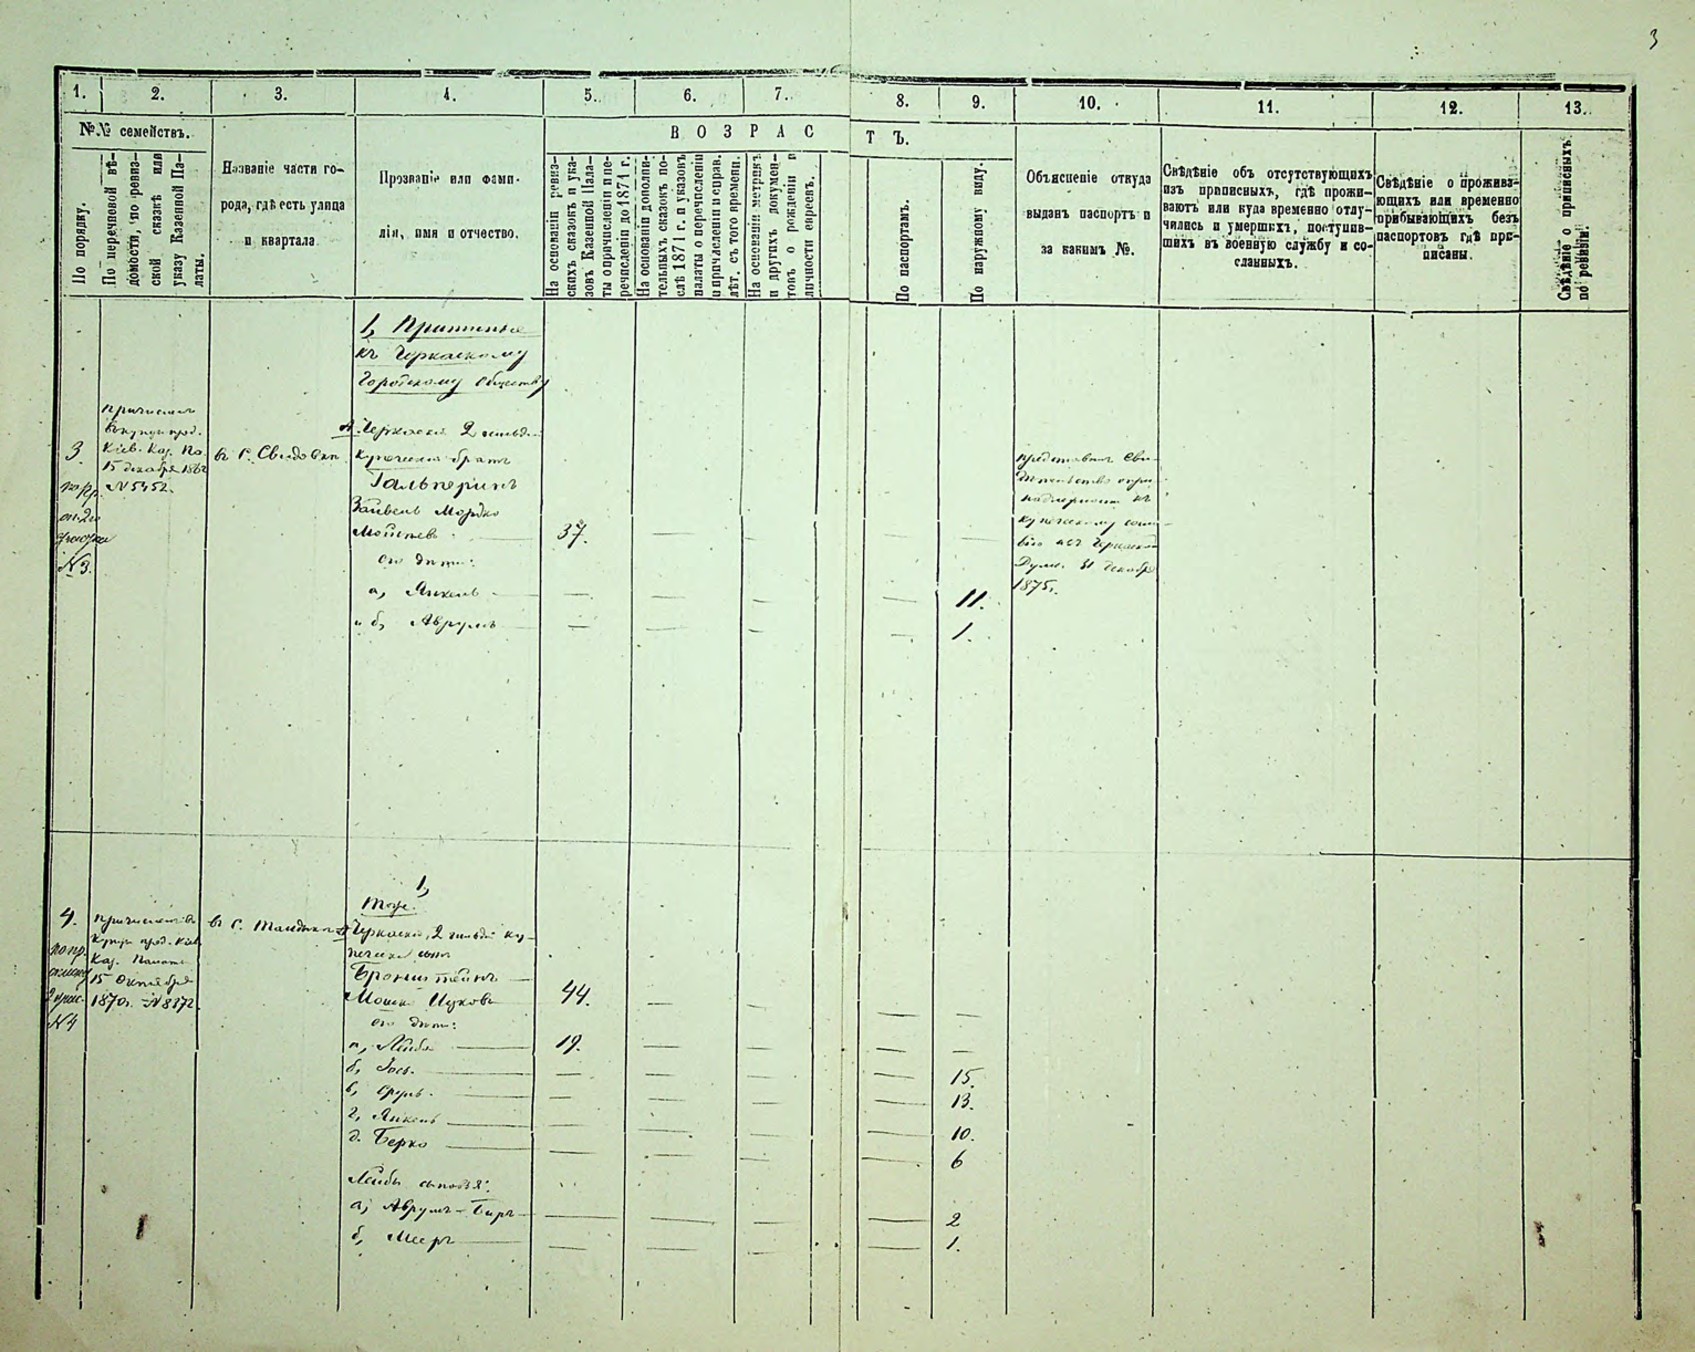 3
1. 2. 3. 4. 5. 6. 7. 8. 9. 10. 11. 12. 13.
№№ семействъ.
По порядку.
По перечневой вѣ-
домости, по ревиз-
ской сказкѣ или
указу Казенной Па-
латы.
Названіе части го-
рода, гдѣ есть улица
и квартала
Прозваніе или фами-
лія, имя и отчество.
ВОЗРАСТЪ.
На основаніи ревиз-
скихъ сказокъ и ука-
зовъ Казенной Пала-
ты о причисленіи и пе-
речисленіи до 1871 г.
На основаніи дополни-
тельныхъ сказокъ по-
слѣ 1871 г. и указовъ
палаты о перечисленіи
и причисленіи и справ.
лѣт. съ того времени.
На основаніи метрикъ
и другихъ докумен-
товъ о рожденіи и
личности евреевъ.
По паспортамъ.
По наружному виду.
Объясненіе откуда
выданъ паспортъ и
за какимъ №.
Свѣдѣніе объ отсутствующихъ
изъ приписныхъ, гдѣ прожи-
ваютъ или куда временно отлу-
чились и умершихъ, поступив-
шихъ въ военную службу и со-
сланныхъ.
Свѣдѣніе о прожива-
ющихъ или временно
прибывающихъ безъ
паспортовъ гдѣ при-
писаны.
Свѣдѣніе о приписныхъ
по ревизіи.
1, 
къ Черкаскому
Городскому Обществу
3.
№ 3.
Кіев. Каз. Па.
15 декабря 186
№ 5452.
въ с.
Черкаскій 2 гильд.
купеческій братъ
Гальперинъ
Мордко
37. — — — —
его дѣти:
а, Янкель — — — — 11.
и б, Аврумъ — — — — 1.
къ
купеческому
Думы. 31 декабр
1875.
1,
Тоже.
4.
№ 4
Каз. Палаты
15 Октября
1870г. № 8372.
въ с.
Черкаскій, 2 гильдіи ку-
печескій сынъ
Бронштейнъ
Мошко Ицковъ 44. — — — —
его дѣти:
а, Лейба 19. — — — —
б, — — — — 15.
в, Сруль — — — — 13.
г, Янкель — — — — 10.
д. Берко — — — — 6
Лейбы сыновья:
а, Аврумъ-Беръ — — — — 2
б, Мееръ — — — — 1.